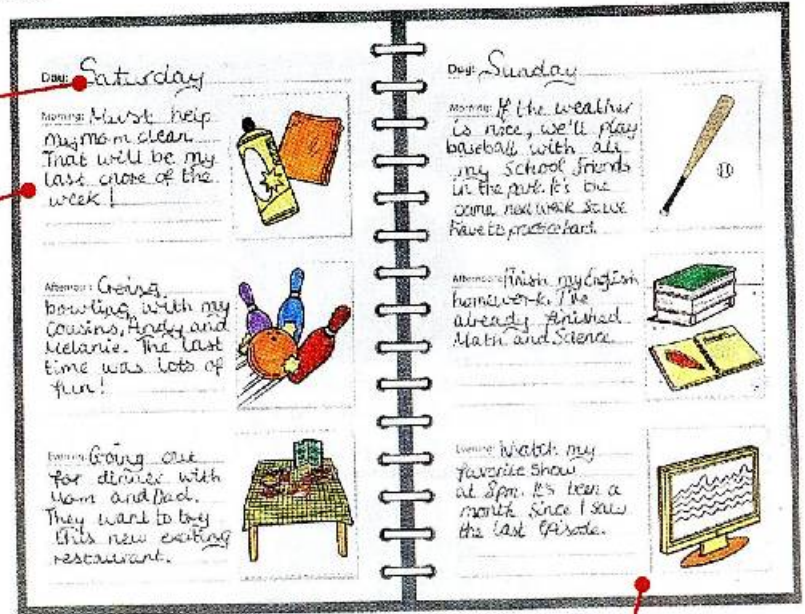 Day: Saturday
Morning: Must help
my mom clean.
That will be my
last chore of the
week!
Afternoon: Going
bowling with my
cousins, Andy and
Melanie. The last
time was lots of
fun!
Evening: Going out
for dinner with
Mom and Dad.
They want to try
this new exciting
restaurant.
Day: Sunday
Morning: If the weather
is nice, we'll play
baseball with all
my school friends
in the park. It's the
game next week so we
have to practice hard.
Afternoon: Finish my English
homework. I've
already finished
Math and Science.
Evening: Watch my
favorite show
at 8pm. It's been a
month since I saw
the last episode.